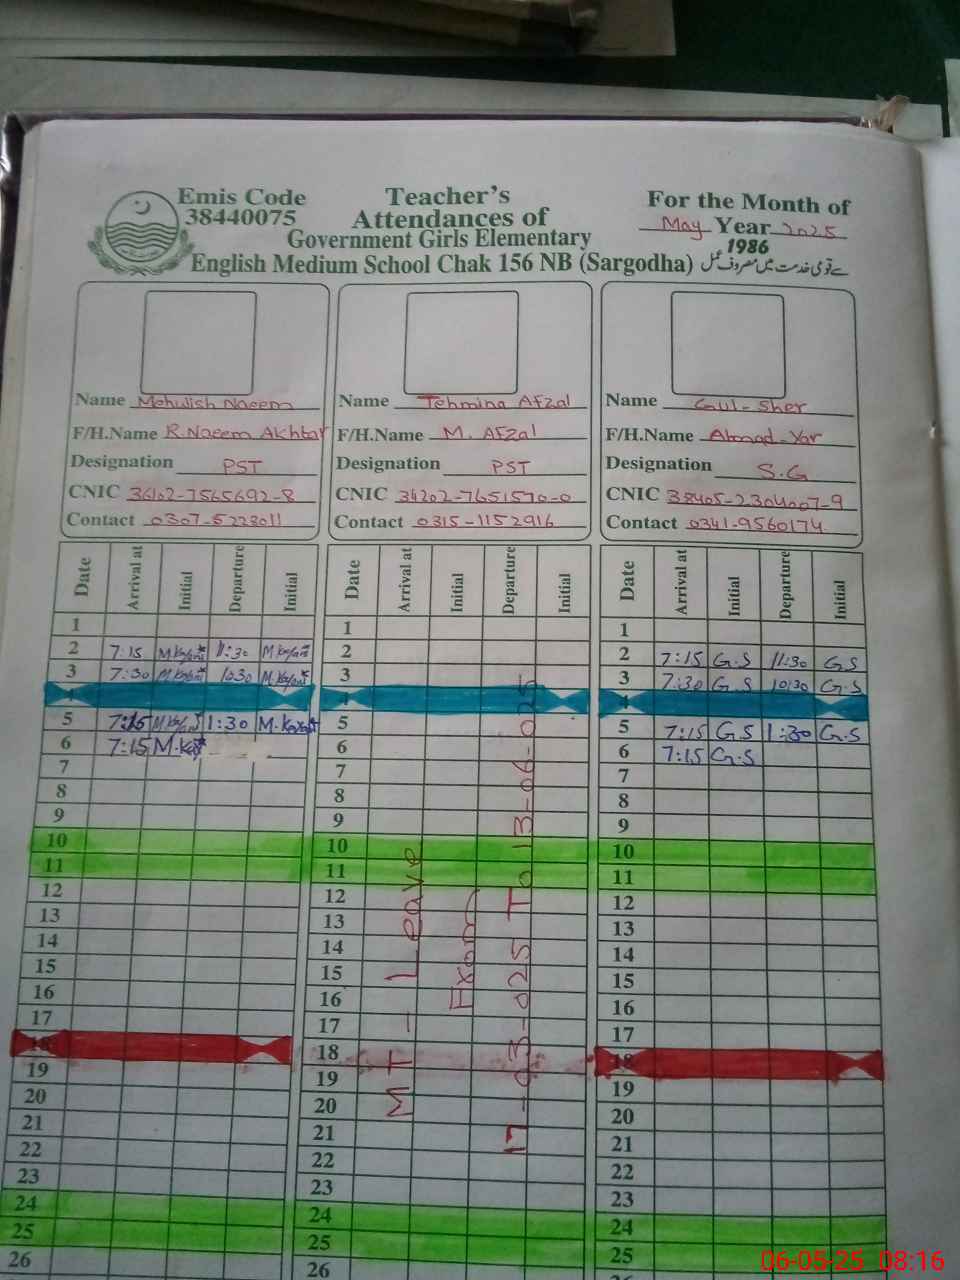 Emis Code
38440075
Teacher's
Attendances of
Government Girls Elementary
English Medium School Chak 156 NB (Sargodha)
For the Month of
May Year 2025
1986
سے قومی خدمت میں مصروف عمل
Name Mehwish Naeem
F/H.Name R.Naeem Akhtar
Designation PST
CNIC 36102-7565692-8
Contact 0307-5223011
Name Tehmina Afzal
F/H.Name M. AFzal
Designation PST
CNIC 34202-7651570-0
Contact 0315-1152916
Name Gul-Sher
F/H.Name Ahmad-Yar
Designation S.G
CNIC 38405-2304007-9
Contact 0341-9560174
Date Arrival at Initial Departure Initial
1
2 7:15 11:30
3 7:30 10:30
5 7:15 1:30
6 7:15
7
8
9
10
11
12
13
14
15
16
17
18
19
20
21
22
23
24
25
26
Date Arrival at Initial Departure Initial
1
2
3
5
6
7
8
9
10
11
12
13
14
15
16
17
18
19
20
21
22
23
24
25
26
MT - Leave
From
17-03-025 To 13-06-025
Date Arrival at Initial Departure Initial
1
2 7:15 G.S 11:30 G.S
3 7:30 G.S 10:30 G.S
5 7:15 G.S 1:30 G.S
6 7:15 G.S
7
8
9
10
11
12
13
14
15
16
17
18
19
20
21
22
23
24
25
06-05-25 08:16